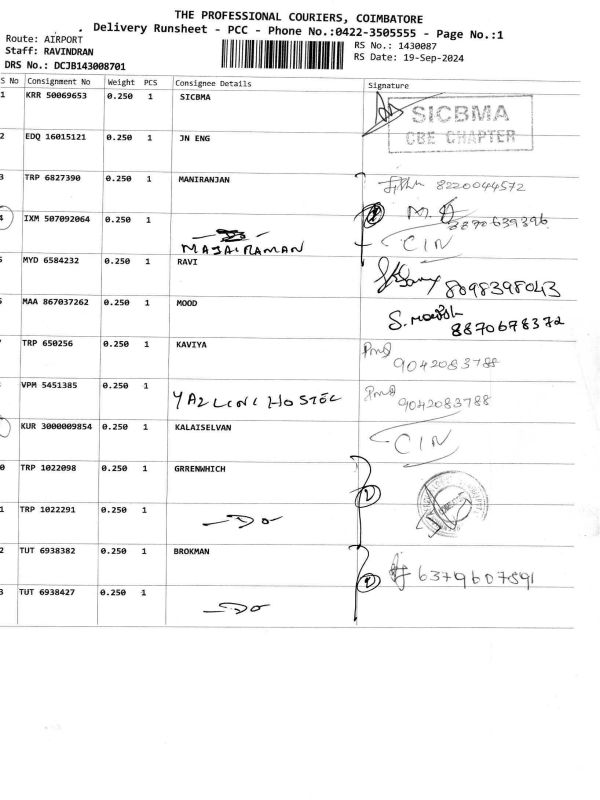 THE PROFESSIONAL COURIERS, COIMBATORE
Delivery Runsheet - PCC - Phone No.:0422-3505555 - Page No.:1
Route: AIRPORT
RS No.: 1430087
Staff: RAVINDRAN
RS Date: 19-Sep-2024
DRS No.: DCJB143008701
S No Consignment No Weight PCS Consignee Details Signature
1 KRR 50069653 0.250 1 SICBMA
SICBMA
CBE CHAPTER
2 EDQ 16015121 0.250 1 JN ENG
3 TRP 6827390 0.250 1 MANIRANJAN 8220044572
4 IXM 507092064 0.250 1 8870639396
CIN
MYD 6584232 0.250 1 RAVI 8098398043
MAA 867037262 0.250 1 MOOD
8870678372
TRP 650256 0.250 1 KAVIYA
9042083788
VPM 5451385 0.250 1 YAZLINI HOSTEL 9042083788
KUR 3000009854 0.250 1 KALAISELVAN CIN
0 TRP 1022098 0.250 1 GRRENWHICH
1 TRP 1022291 0.250 1 Do
2 TUT 6938382 0.250 1 BROKMAN 6379607591
3 TUT 6938427 0.250 1 Do